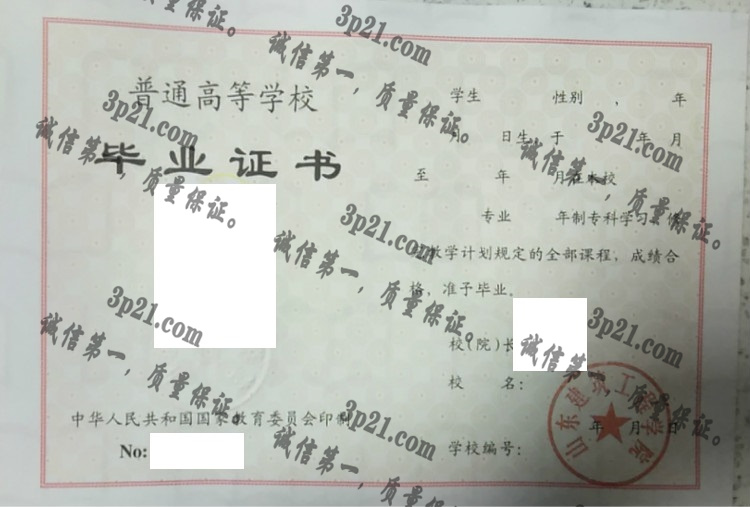 普通高等学校
毕业证书
中华人民共和国国家教育委员会印制
No:
学生 性别 , 年
月 日生, 于 年 月
至 年 月在本校
专业 年制专科学习,修
教学计划规定的全部课程,成绩合
格,准予毕业。
校(院)长
校 名:
年 月 日
学校编号:
山东建筑工程学院
3p21.com
诚信第一,质量保证。
3p21.com
诚信第一,质量保证。
3p21.com
诚信第一,质量保证。
3p21.com
诚信第一,质量保证。
3p21.com
诚信第一,质量保证。
3p21.com
诚信第一,质量保证。
3p21.com
诚信第一,质量保证。